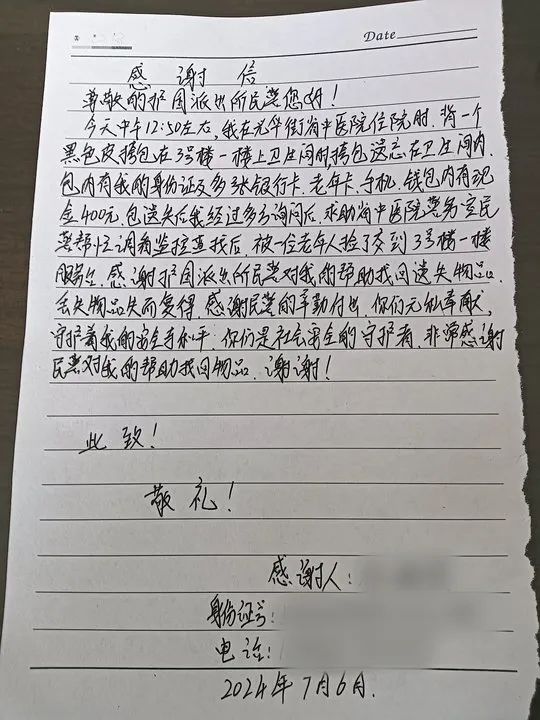 Date
感谢信
尊敬的护国派出所民警您好！
今天中午12:50左右，我在光华街省中医院住院时，背一个
黑色皮挎包在3号楼一楼上卫生间时挎包遗忘在卫生间内，
包内有我的身份证及多张银行卡、老年卡、手机、钱包内有现
金400元，包遗失后我经过多方询问后，求助省中医院警务室民
警帮忙调看监控查找后，被一位老年人捡了交到3号楼一楼
服务台，感谢护国派出所民警对我的帮助找回遗失物品，
丢失物品失而复得，感谢民警的辛勤付出，你们无私奉献，
守护着我的安全和平，你们是社会安全的守护者，非常感谢
民警对我的帮助找回物品，谢谢！
此致！
敬礼！
感谢人：
身份证号：
电话：
2024年7月6日.